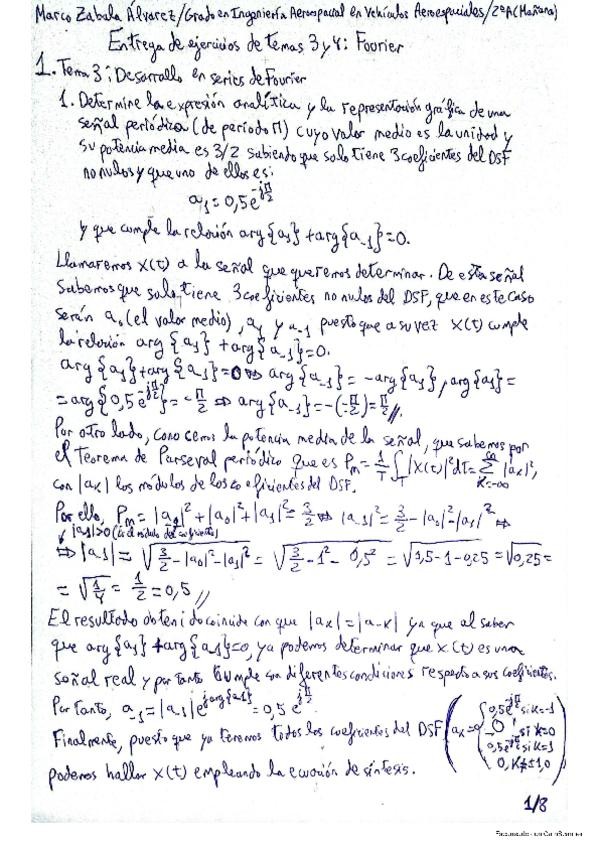 Marco Zabala Álvarez/Grado en Ingeniería Aeroespacial en Vehículos Aeroespaciales/2ºA(Mañana)
Entrega de ejercicios de temas 3 y 4: Fourier
1. Tema 3: Desarrollo en series de Fourier
1. Determine la expresión analítica y la representación gráfica de una
señal periódica (de periodo π) cuyo valor medio es la unidad y
su potencia media es 3/2 sabiendo que solo tiene 3 coeficientes del DSF
no nulos y que uno de ellos es:
a₁ = 0,5e^{-jπ/2}
y que cumple la relación arg{a₁} + arg{a₋₁} = 0.
Llamaremos x(t) a la señal que queremos determinar. De esta señal
sabemos que solo tiene 3 coeficientes no nulos del DSF, que en este caso
serán a₀ (el valor medio), a₁ y a₋₁ puesto que a su vez x(t) cumple
la relación arg{a₁} + arg{a₋₁} = 0.
arg{a₁} + arg{a₋₁} = 0 ⇔ arg{a₋₁} = -arg{a₁}, arg{a₁} =
= arg{0,5e^{-jπ/2}} = -π/2 ⇒ arg{a₋₁} = -(-π/2) = π/2 //
Por otro lado, conocemos la potencia media de la señal, que sabemos por
el Teorema de Parseval periódico que es Pm = 1/T ∫_T |x(t)|² dt = Σ_{K=-∞}^{∞} |aK|²,
con |aK| los módulos de los coeficientes del DSF.
Por ello, Pm = |a₋₁|² + |a₀|² + |a₁|² = 3/2 ⇔ |a₋₁|² = 3/2 - |a₀|² - |a₁|² ⇒
|a₋₁|>0 (es el módulo del coeficiente)
⇒ |a₋₁| = √(3/2 - |a₀|² - |a₁|²) = √(3/2 - 1² - 0,5²) = √(1,5 - 1 - 0,25) = √0,25 =
= √(1/4) = 1/2 = 0,5 //
El resultado obtenido coincide con que |aK| = |a-K| ya que al saber
que arg{a₁} + arg{a₋₁} = 0, ya podemos determinar que x(t) es una
señal real y por tanto cumple con diferentes condiciones respecto a sus coeficientes.
Por tanto, a₋₁ = |a₋₁| e^{j arg{a₋₁}} = 0,5 e^{jπ/2}
Finalmente, puesto que ya tenemos todos los coeficientes del DSF (aK = { 0,5e^{jπ/2} si K=-1
, si K=0
0,5e^{-jπ/2} si K=1
0, K≠±1,0 )
podemos hallar x(t) empleando la ecuación de síntesis.
1/8
Escaneado con CamScanner